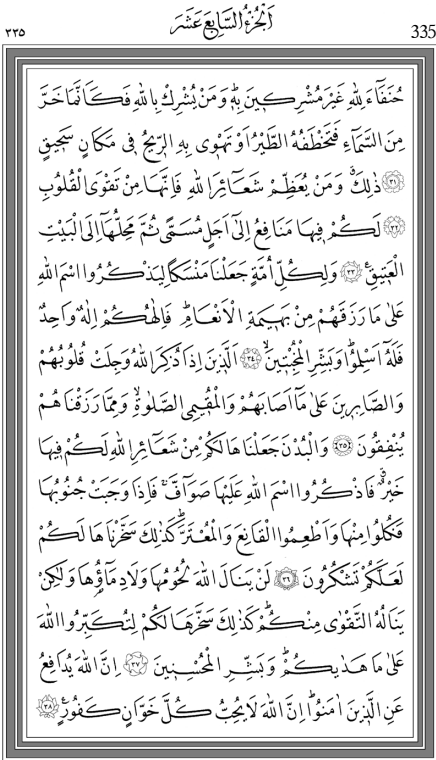 ٣٣٥ اَلْجُزْءُ السَّابِعَ عَشَرَ 335
حُنَفَٓاءَ لِلّٰهِ غَيْرَ مُشْرِك۪ينَ بِه۪ۜ وَمَنْ يُشْرِكْ بِاللّٰهِ فَكَاَنَّمَا خَرَّ
مِنَ السَّمَٓاءِ فَتَخْطَفُهُ الطَّيْرُ اَوْ تَهْو۪ي بِهِ الرّ۪يحُ ف۪ي مَكَانٍ سَح۪يقٍ
﴿٣١﴾ ذٰلِكَۗ وَمَنْ يُعَظِّمْ شَعَٓائِرَ اللّٰهِ فَاِنَّهَا مِنْ تَقْوَى الْقُلُوبِ
﴿٣٢﴾ لَكُمْ ف۪يهَا مَنَافِعُ اِلٰٓى اَجَلٍ مُسَمًّى ثُمَّ مَحِلُّهَٓا اِلَى الْبَيْتِ
الْعَت۪يقِ۟ ﴿٣٣﴾ وَلِكُلِّ اُمَّةٍ جَعَلْنَا مَنْسَكًا لِيَذْكُرُوا اسْمَ اللّٰهِ
عَلٰى مَا رَزَقَهُمْ مِنْ بَه۪يمَةِ الْاَنْعَامِۜ فَاِلٰهُكُمْ اِلٰهٌ وَاحِدٌ
فَلَهُٓ اَسْلِمُواۜ وَبَشِّرِ الْمُخْبِت۪ينَۙ ﴿٣٤﴾ اَلَّذ۪ينَ اِذَا ذُكِرَ اللّٰهُ وَجِلَتْ قُلُوبُهُمْ
وَالصَّابِر۪ينَ عَلٰى مَٓا اَصَابَهُمْ وَالْمُق۪يمِي الصَّلٰوةِۙ وَمِمَّا رَزَقْنَاهُمْ
يُنْفِقُونَ ﴿٣٥﴾ وَالْبُدْنَ جَعَلْنَاهَا لَكُمْ مِنْ شَعَٓائِرِ اللّٰهِ لَكُمْ ف۪يهَا
خَيْرٌۗ فَاذْكُرُوا اسْمَ اللّٰهِ عَلَيْهَا صَوَٓافَّۚ فَاِذَا وَجَبَتْ جُنُوبُهَا
فَكُلُوا مِنْهَا وَاَطْعِمُوا الْقَانِعَ وَالْمُعْتَرَّۜ كَذٰلِكَ سَخَّرْنَاهَا لَكُمْ
لَعَلَّكُمْ تَشْكُرُونَ ﴿٣٦﴾ لَنْ يَنَالَ اللّٰهَ لُحُومُهَا وَلَا دِمَٓاؤُ۬هَا وَلٰكِنْ
يَنَالُهُ التَّقْوٰى مِنْكُمْۜ كَذٰلِكَ سَخَّرَهَا لَكُمْ لِتُكَبِّرُوا اللّٰهَ
عَلٰى مَا هَدٰيكُمْۜ وَبَشِّرِ الْمُحْسِن۪ينَ ﴿٣٧﴾ اِنَّ اللّٰهَ يُدَافِعُ
عَنِ الَّذ۪ينَ اٰمَنُواۜ اِنَّ اللّٰهَ لَا يُحِبُّ كُلَّ خَوَّانٍ كَفُورٍ۟ ﴿٣٨﴾